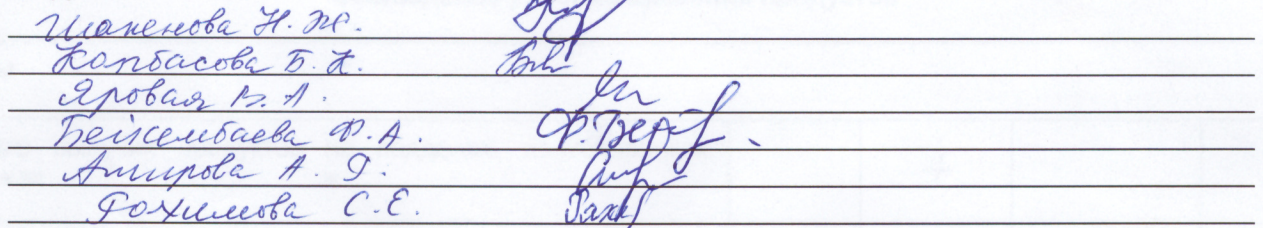 Шакенова Н. Ж.
Копбасова Б. К.
Яровая В. А.
Бейсембаева Ф. А. Ф. Бей
Амирова А. Г.
Рахимова С. Е. Рахи